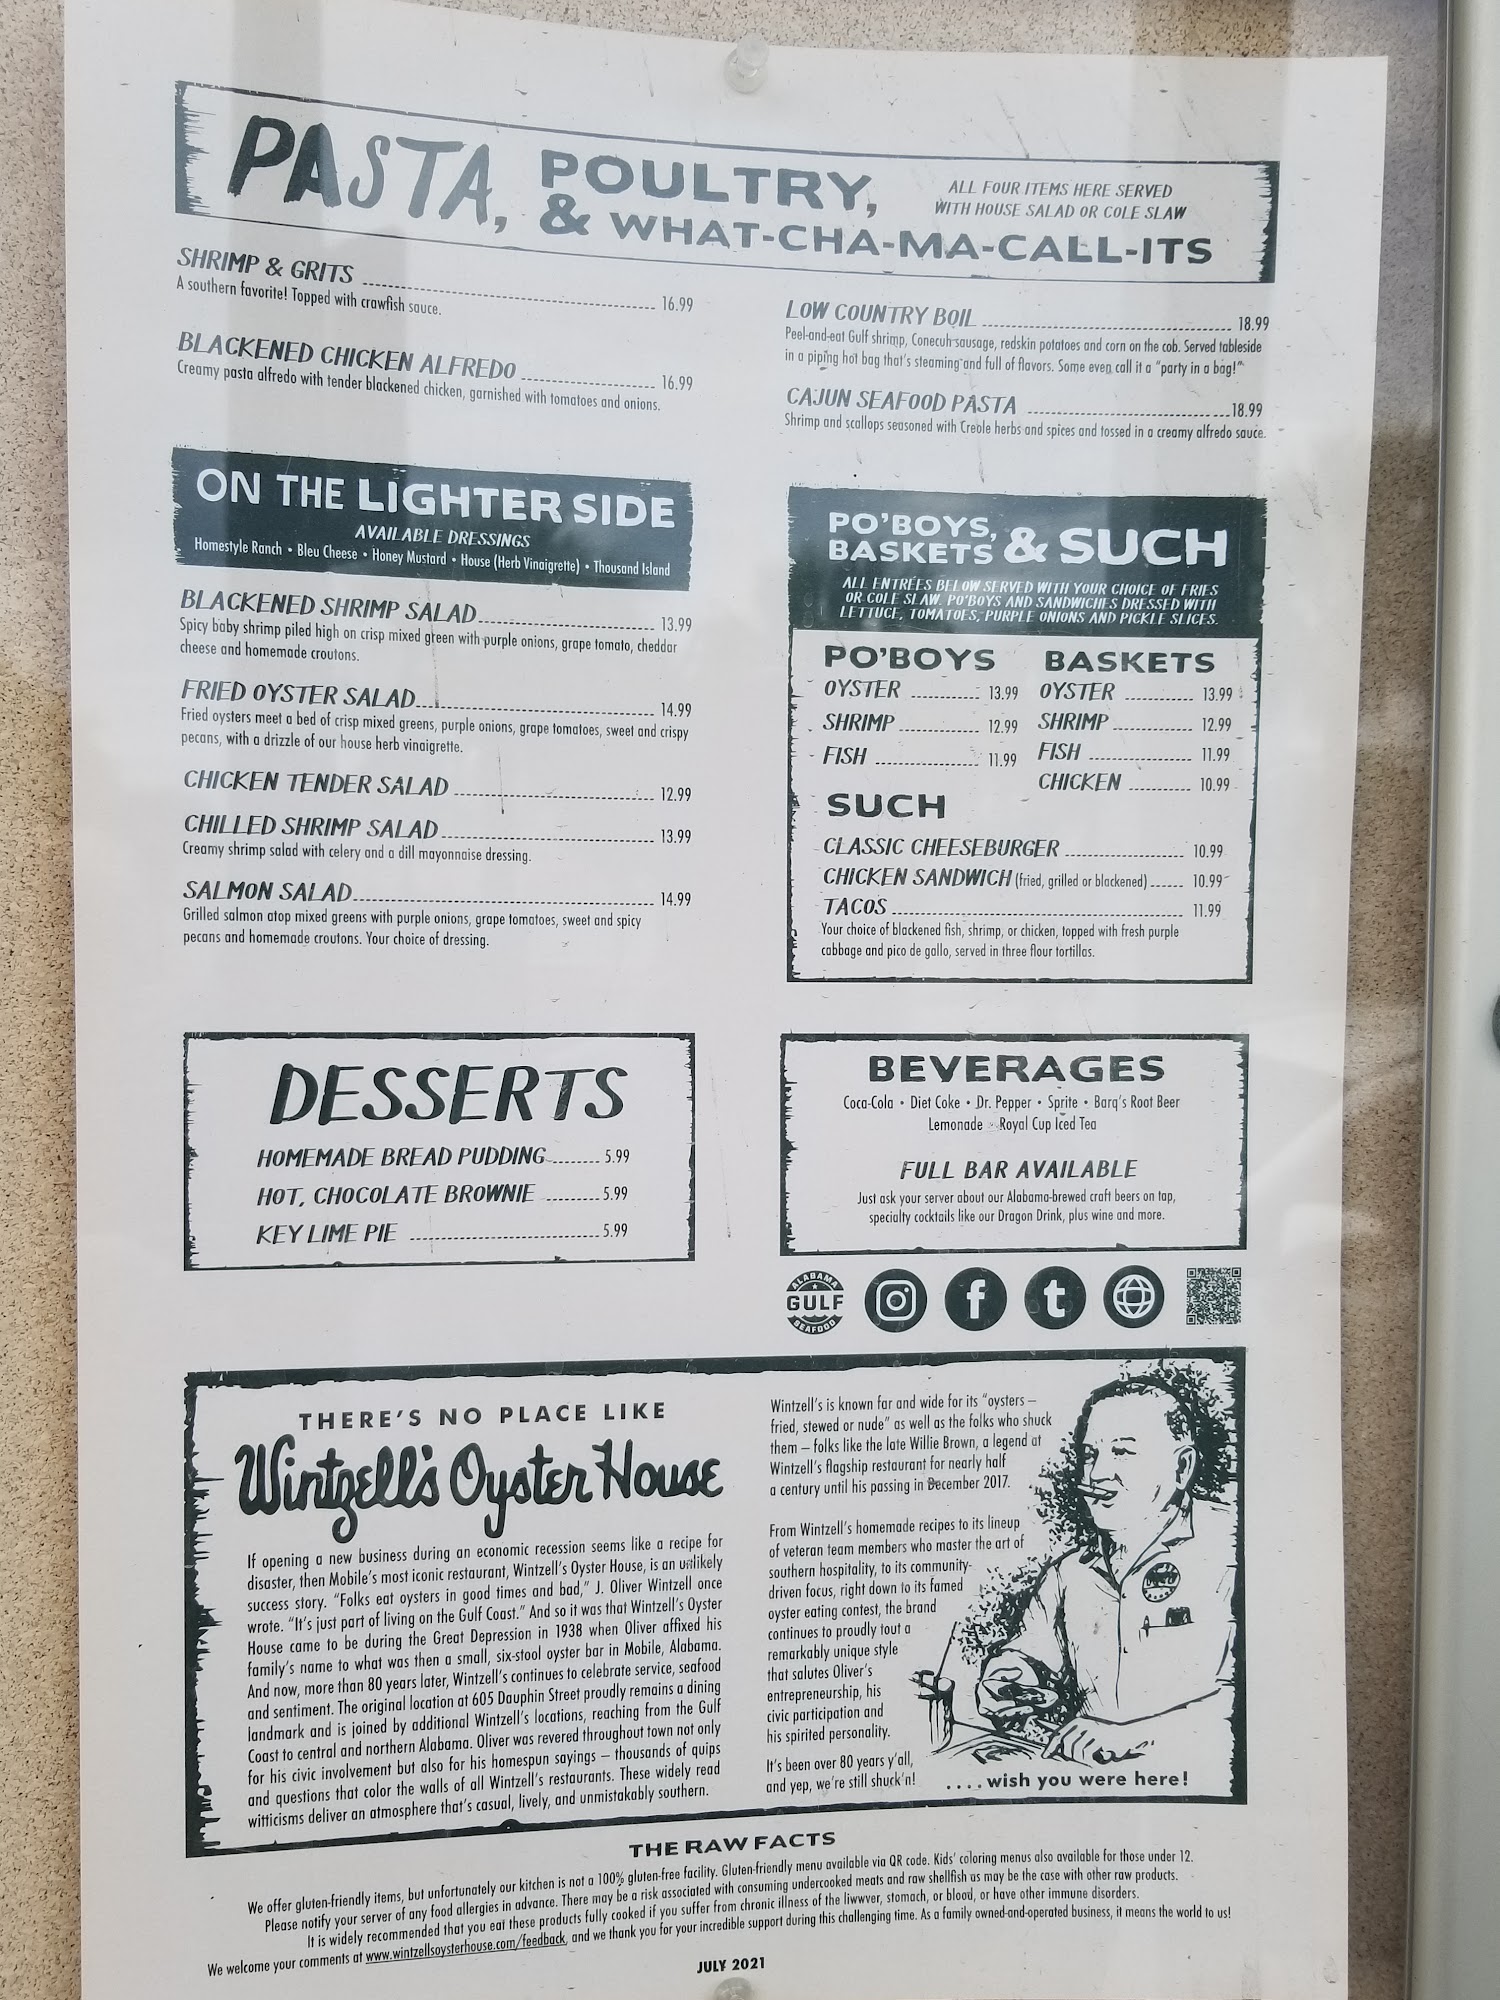 PASTA, POULTRY, & WHAT-CHA-MA-CALL-ITS
ALL FOUR ITEMS HERE SERVED
WITH HOUSE SALAD OR COLE SLAW
SHRIMP & GRITS 16.99
A southern favorite! Topped with crawfish sauce.
BLACKENED CHICKEN ALFREDO 16.99
Creamy pasta alfredo with tender blackened chicken, garnished with tomatoes and onions.
LOW COUNTRY BOIL 18.99
Peel-and-eat Gulf shrimp, Conecuh sausage, redskin potatoes and corn on the cob. Served tableside
in a piping hot bag that's steaming and full of flavors. Some even call it a "party in a bag!"
CAJUN SEAFOOD PASTA 18.99
Shrimp and scallops seasoned with Creole herbs and spices and tossed in a creamy alfredo sauce.
ON THE LIGHTER SIDE
AVAILABLE DRESSINGS
Homestyle Ranch • Bleu Cheese • Honey Mustard • House (Herb Vinaigrette) • Thousand Island
BLACKENED SHRIMP SALAD 13.99
Spicy baby shrimp piled high on crisp mixed green with purple onions, grape tomato, cheddar
cheese and homemade croutons.
FRIED OYSTER SALAD 14.99
Fried oysters meet a bed of crisp mixed greens, purple onions, grape tomatoes, sweet and crispy
pecans, with a drizzle of our house herb vinaigrette.
CHICKEN TENDER SALAD 12.99
CHILLED SHRIMP SALAD 13.99
Creamy shrimp salad with celery and a dill mayonnaise dressing.
SALMON SALAD 14.99
Grilled salmon atop mixed greens with purple onions, grape tomatoes, sweet and spicy
pecans and homemade croutons. Your choice of dressing.
PO'BOYS, BASKETS & SUCH
ALL ENTRÉES BELOW SERVED WITH YOUR CHOICE OF FRIES
OR COLE SLAW. PO'BOYS AND SANDWICHES DRESSED WITH
LETTUCE, TOMATOES, PURPLE ONIONS AND PICKLE SLICES.
PO'BOYS
OYSTER 13.99
SHRIMP 12.99
FISH 11.99
BASKETS
OYSTER 13.99
SHRIMP 12.99
FISH 11.99
CHICKEN 10.99
SUCH
CLASSIC CHEESEBURGER 10.99
CHICKEN SANDWICH (fried, grilled or blackened) 10.99
TACOS 11.99
Your choice of blackened fish, shrimp, or chicken, topped with fresh purple
cabbage and pico de gallo, served in three flour tortillas.
DESSERTS
HOMEMADE BREAD PUDDING 5.99
HOT, CHOCOLATE BROWNIE 5.99
KEY LIME PIE 5.99
BEVERAGES
Coca-Cola • Diet Coke • Dr. Pepper • Sprite • Barq's Root Beer
Lemonade • Royal Cup Iced Tea
FULL BAR AVAILABLE
Just ask your server about our Alabama-brewed craft beers on tap,
specialty cocktails like our Dragon Drink, plus wine and more.
ALABAMA
GULF
SEAFOOD
THERE'S NO PLACE LIKE
Wintzell's Oyster House
If opening a new business during an economic recession seems like a recipe for
disaster, then Mobile's most iconic restaurant, Wintzell's Oyster House, is an unlikely
success story. "Folks eat oysters in good times and bad," J. Oliver Wintzell once
wrote. "It's just part of living on the Gulf Coast." And so it was that Wintzell's Oyster
House came to be during the Great Depression in 1938 when Oliver affixed his
family's name to what was then a small, six-stool oyster bar in Mobile, Alabama.
And now, more than 80 years later, Wintzell's continues to celebrate service, seafood
and sentiment. The original location at 605 Dauphin Street proudly remains a dining
landmark and is joined by additional Wintzell's locations, reaching from the Gulf
Coast to central and northern Alabama. Oliver was revered throughout town not only
for his civic involvement but also for his homespun sayings – thousands of quips
and questions that color the walls of all Wintzell's restaurants. These widely read
witticisms deliver an atmosphere that's casual, lively, and unmistakably southern.
Wintzell's is known far and wide for its "oysters –
fried, stewed or nude" as well as the folks who shuck
them – folks like the late Willie Brown, a legend at
Wintzell's flagship restaurant for nearly half
a century until his passing in December 2017.
From Wintzell's homemade recipes to its lineup
of veteran team members who master the art of
southern hospitality, to its community-
driven focus, right down to its famed
oyster eating contest, the brand
continues to proudly tout a
remarkably unique style
that salutes Oliver's
entrepreneurship, his
civic participation and
his spirited personality.
It's been over 80 years y'all,
and yep, we're still shuck'n!
....wish you were here!
THE RAW FACTS
We offer gluten-friendly items, but unfortunately our kitchen is not a 100% gluten-free facility. Gluten-friendly menu available via QR code. Kids' coloring menus also available for those under 12.
Please notify your server of any food allergies in advance. There may be a risk associated with consuming undercooked meats and raw shellfish as may be the case with other raw products.
It is widely recommended that you eat these products fully cooked if you suffer from chronic illness of the liwwver, stomach, or blood, or have other immune disorders.
We welcome your comments at www.wintzellsoysterhouse.com/feedback, and we thank you for your incredible support during this challenging time. As a family owned-and-operated business, it means the world to us!
JULY 2021